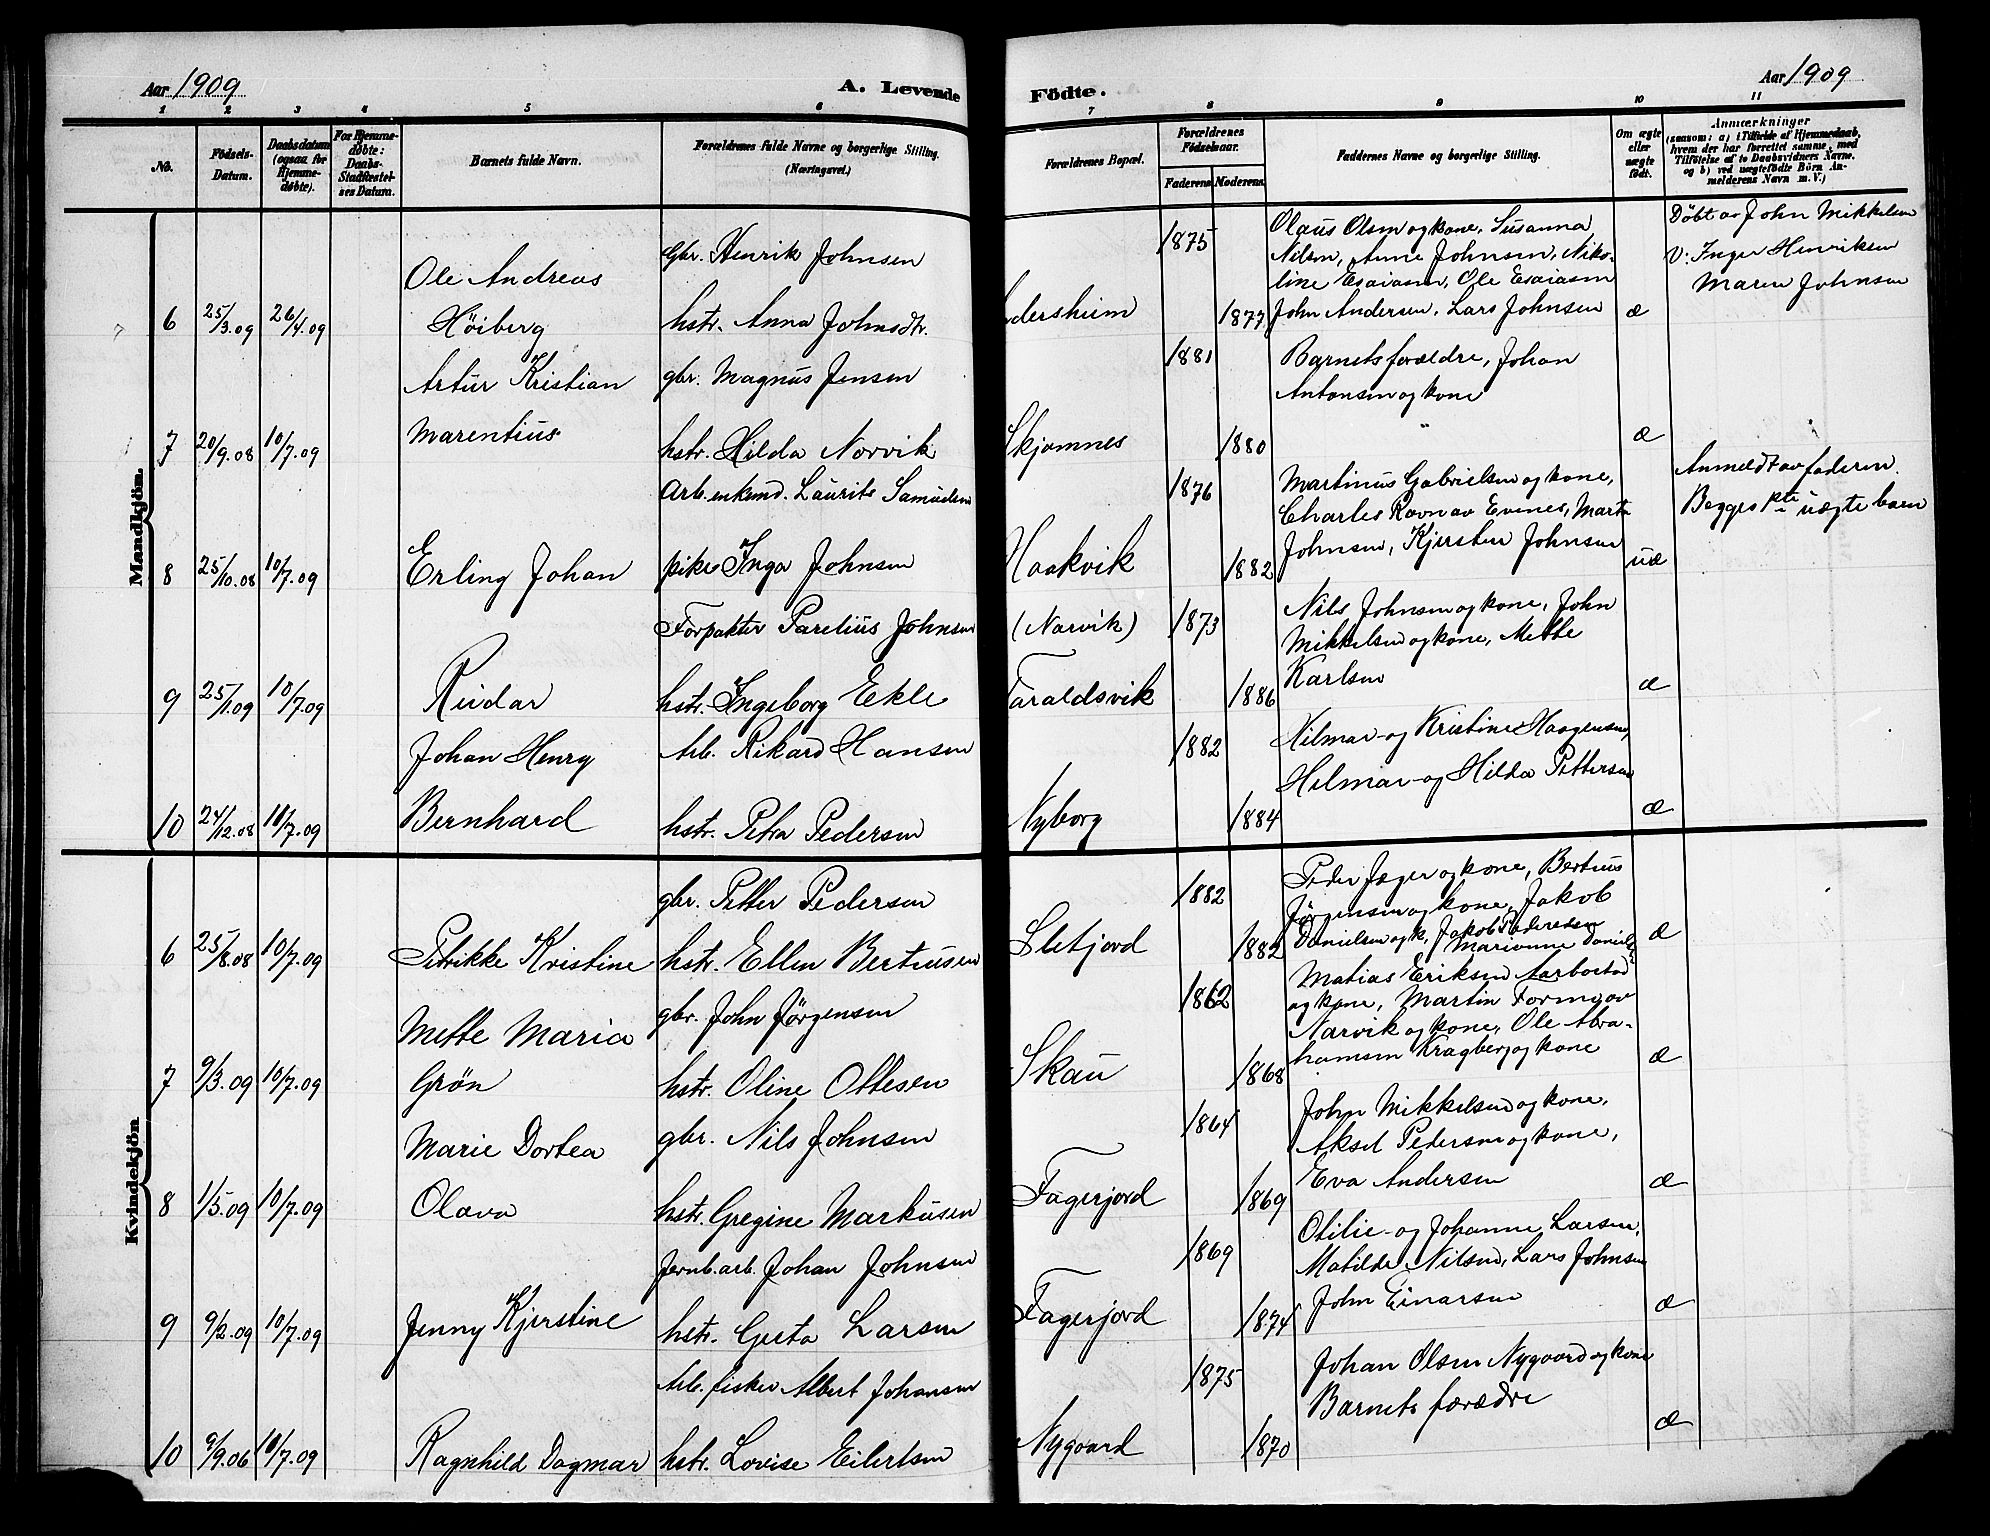 Aar 1909
A. Levende
Födte.
Aar 1909
1 2 3 4 5 6 7 8 9 10 11
No.
Födsels-Datum.
Daabsdatum (ogsaa for Hjemme-døbte).
For Hjemme-døbte: Daabs-Stadfæstel-ses Datum.
Barnets fulde Navn.
Forældrenes fulde Navne og borgerlige Stilling. (Næringsvei.)
Forældrenes Bopæl.
Forældrenes Födselsaar.
Faderens. Moderens.
Faddernes Navne og borgerlige Stilling.
Om ægte eller uægte födt.
Anmærkninger
(saasom: a) i Tilfælde af Hjemmedaab, hvem der har forrettet samme, med Tilföielse af to Daabsvidners Navne, og b) ved uægtefödte Börn An-melderens Navn m. V.)
Mandkjön.
6 25/3.09 26/4.09
Ole Andreas
Höiberg
Gbr. Henrik Johnsen
hstr. Anna Johnsdtr.
dersheim
1875
1877
Olaus Olsen og kone, Susanna
Nilsen, Anne Johnsen, Niko-
line Esaiasen, Ole Esaiasen
John Andersen, Lars Johnsen
æ
Døbt av John Mikkelsen
V: Inger Henriksen
Maren Johnsen
7 20/9.08 10/7.09
Artur Kristian
Marentius
gbr. Magnus Jensen
hstr. Hilda Norvik
Skjomnes
1881
1880
Barnets forældre, Johan
Antonsen og kone
æ
8 25/10.08 10/7.09
Erling Johan
Arb. enkemd. Laurits Samuelsen
pike Inga Johnsen
Haakvik
(Narvik)
1876
1882
Martinus Gabrielsen og kone,
Charles Ravn av Evenes, Marta
Johnsen, Kjersten Johnsen
uæ
Anmeldt av faderen.
Begges 1ste uægte barn
9 25/1.09 10/7.09
Reidar
Forpakter Parelius Johnsen
hstr. Ingeborg Ekle
Taraldsvik
1873
1886
Nils Johnsen og kone, John
Mikkelsen og kone, Mette
Karlsen
æ
10 24/12.08 10/7.09
Johan Henry
Bernhard
Arb. Rikard Hansen
hstr. Petra Pedersen
Nyborg
1882
1884
Hilmar og Kristine Haagensen,
Helmar og Hilda Pettersen
æ
Kvindekjön
6 25/8.08 10/7.09
Petrikke Kristine
gbr. Petter Pedersen
hstr. Ellen Bertiusen
Sletjord
1882
1882
Peder Jæger og kone, Bertius
Jørgensen og kone, Jakob
Danielsen og k, Jakob Pedersen
Marianne Daniels
æ
7 9/3.09 10/7.09
Mette Maria
Grön
gbr. John Jørgensen
hstr. Oline Ottesen
Skau
1862
1868
Matias Eriksen Aarbostad
og kone, Martin Formo av
Narvik og kone, Ole Abra-
hamsen Kragberg og kone
æ
8 1/5.09 10/7.09
Marie Dortea
Olava
gbr. Nils Johnsen
hstr. Gregine Markusen
Fagerjord
1864
1869
John Mikkelsen og kone,
Aksel Pedersen og kone,
Eva Andersen
æ
9 9/2.09 10/7.09
Jenny Kjerstine
Jernb.arb. Johan Johnsen
hstr. Gerta Larsen
Fagerjord
1869
1874
Otilie og Johanne Larsen,
Matilde Nilsen, Lars Johnsen
John Einarsen
æ
10 9/9.06 10/7.09
Ragnhild Dagmar
Arb. fisker Albert Johansen
hstr. Lovise Eilertsen
Nygaard
1875
1870
Johan Olsen Nygaard og kone
Barnets forædre
æ